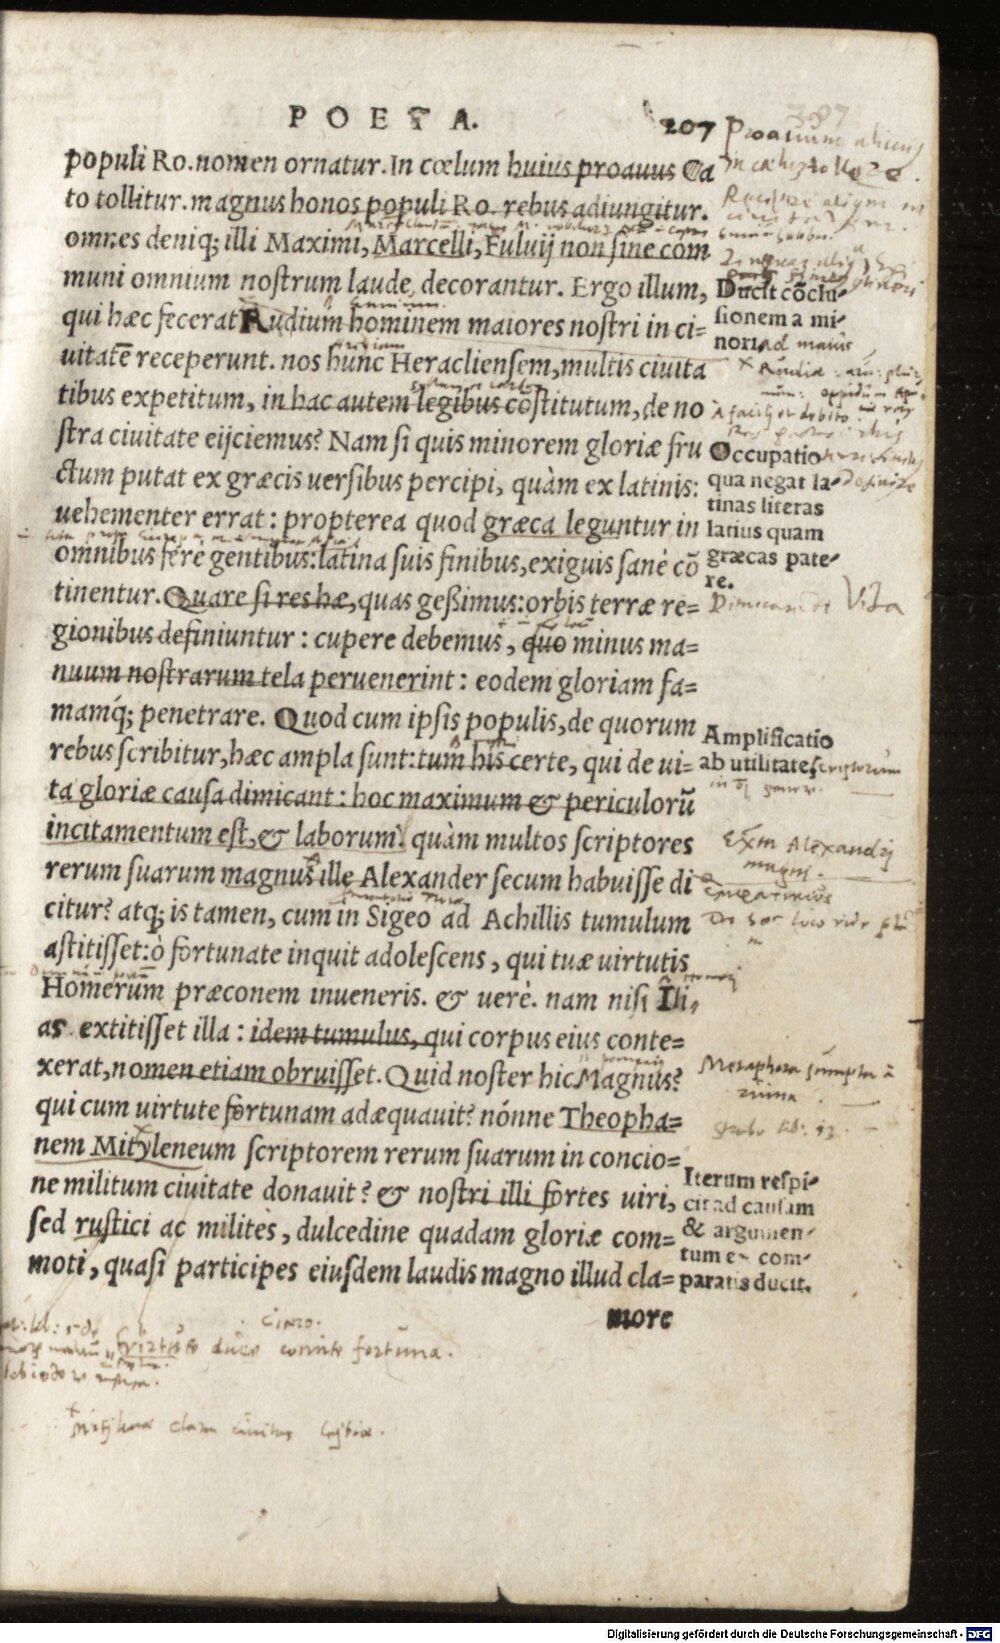 POETA.
207
populi Ro. nomen ornatur. In cœlum huius proauus Ca
to tollitur. magnus honos populi Ro. rebus adiungitur.
omnes deniq; illi Maximi, Marcelli, Fuluij non sine com
muni omnium nostrum laude decorantur. Ergo illum,
qui hæc fecerat Rudium hominem maiores nostri in ci=
uitatē receperunt. nos hunc Heracliensem, multis ciuita
tibus expetitum, in hac autem legibus cōstitutum, de no
stra ciuitate eijciemus? Nam si quis minorem gloriæ fru
ctum putat ex græcis uersibus percipi, quàm ex latinis:
uehementer errat: propterea quod græca leguntur in
omnibus ferè gentibus: latina suis finibus, exiguis sanè cō
tinentur. Quare si res hæ, quas geßimus: orbis terræ re=
gionibus definiuntur: cupere debemus, quo minus ma=
nuum nostrarum tela peruenerint: eodem gloriam fa=
mamq́; penetrare. Quod cum ipsis populis, de quorum
rebus scribitur, hæc ampla sunt: tum his certe, qui de ui=
ta gloriæ causa dimicant: hoc maximum & periculorū
incitamentum est, & laborum. quàm multos scriptores
rerum suarum magnus ille Alexander secum habuisse di
citur? atq; is tamen, cum in Sigeo ad Achillis tumulum
astitisset: ò fortunate inquit adolescens, qui tuæ uirtutis
Homerum præconem inueneris. & uerè. nam nisi Ili,
as extitisset illa: idem tumulus, qui corpus eius conte=
xerat, nomen etiam obruisset. Quid noster hic Magnus?
qui cum uirtute fortunam adæquauit? nónne Theopha=
nem Mityleneum scriptorem rerum suarum in concio=
ne militum ciuitate donauit? & nostri illi fortes uiri,
sed rustici ac milites, dulcedine quadam gloriæ com=
moti, quasi participes eiusdem laudis magno illud cla=
more
Ducit cōclu-
sionem a mi-
nori ad maius
Occupatio
qua negat la-
tinas literas
latius quam
græcas pate-
re.
Vita
Amplificatio
ab utilitate scriptorum
Exm Alexandri
magni.
Metaphora sumpta à
Iterum respi-
cit ad causam
& argumen-
tum ex com-
paratis ducit.
virtute duce comite fortuna.
Mitylenae clara ciuitas Lesbiae.
Digitalisierung gefördert durch die Deutsche Forschungsgemeinschaft - DFG